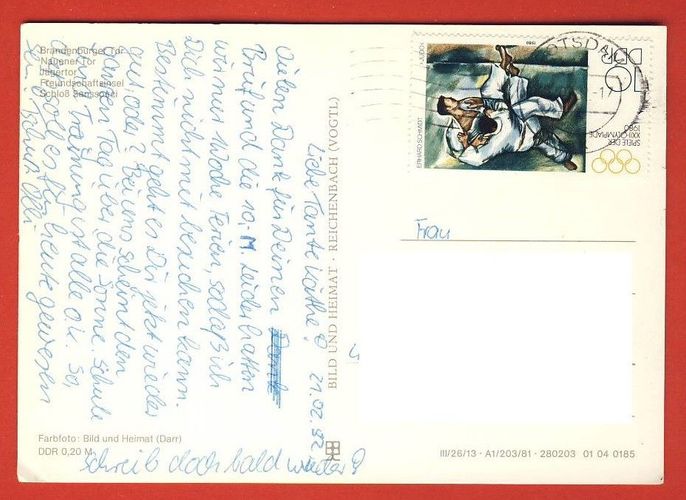 Brandenburger Tor
Nauener Tor
Jägertor
Freundschaftsinsel
Schloß Sanssouci
Liebe Tante Käthe! 21.02.82
Vielen Dank für Deinen
Brief und die 10,- M. Leider hatten
wir nur 1 Woche Ferien, sodaß ich
Dich nicht mit besuchen kann.
Bestimmt geht es Dir jetzt wieder
gut oder? Bei uns scheint den
ganzen Tag über die Sonne. Schule
und Training ist alle o.k. So,
das soll es für heute gewesen
sein. Gruß
schreib doch bald wieder!
Farbfoto: Bild und Heimat (Darr)
DDR 0,20 M
BILD UND HEIMAT · REICHENBACH (VOGTL)
Frau
DDR
10
SPIELE DER
XXII. OLYMPIADE
1980
ERHARD SCHMIDT
JUDOKA
1980
OTSDA
17
III/26/13 · A1/203/81 · 280203 01 04 0185